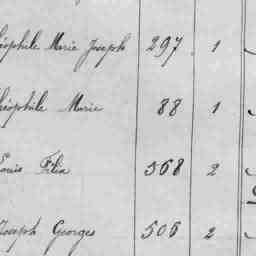 éophile Marie Joseph 297 1
héophile Marie 88 1
Louis Félix 568 2
Joseph Georges 506 2